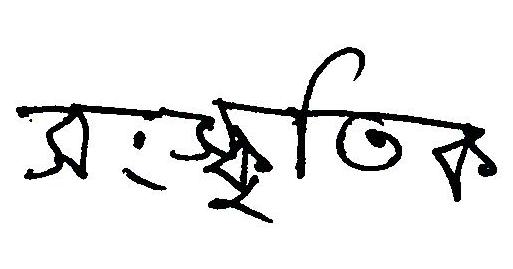 সংস্কৃতিক